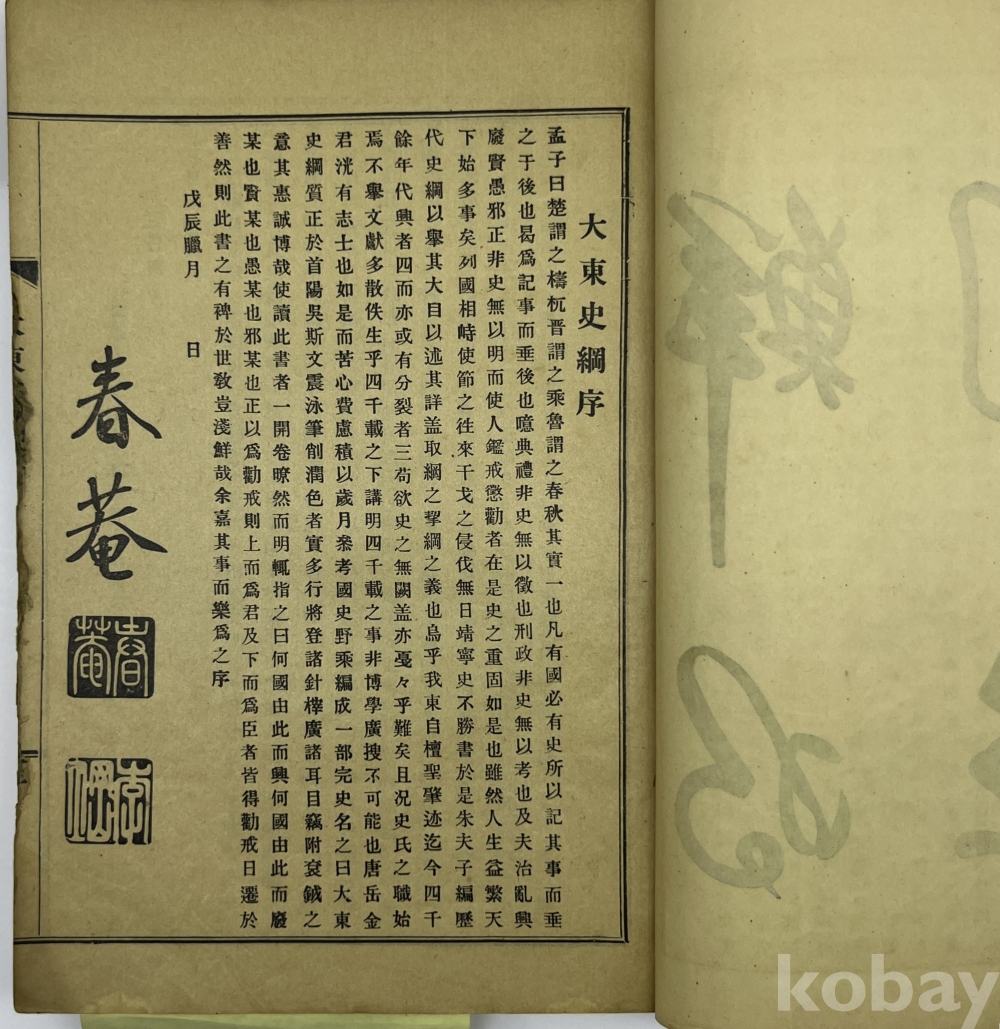 大東史綱序
孟子曰楚謂之檮杌晋謂之乘魯謂之春秋其實一也凡有國必有史所以記其事而垂
之于後也曷爲記事而垂後也噫典禮非史無以徵也刑政非史無以考也及夫治亂興
廢賢愚邪正非史無以明而使人鑑戒懲勸者在是史之重固如是也雖然人生益繁天
下始多事矣列國相峙使節之徃來干戈之侵伐無日靖寧史不勝書於是朱夫子編歷
代史綱以擧其大目以述其詳盖取綱之挈綱之義也烏乎我東自檀聖肇迹迄今四千
餘年代興者四而亦或有分裂者三苟欲史之無闕盖亦戞々乎難矣且况史氏之職始
焉不擧文獻多散佚生乎四千載之下講明四千載之事非博學廣搜不可能也唐岳金
君洸有志士也如是而苦心費慮積以歲月叅考國史野乘編成一部完史名之曰大東
史綱質正於首陽吳斯文震泳筆削潤色者實多行將登諸針榟廣諸耳目竊附袞鉞之
意其惠誠博哉使讀此書者一開卷暸然而明輒指之曰何國由此而興何國由此而廢
某也賢某也愚某也邪某也正以爲勸戒則上而爲君及下而爲臣者皆得勸戒日遷於
善然則此書之有裨於世敎豈淺鮮哉余嘉其事而樂爲之序
戊辰臘月 日
春菴
春菴
kobay